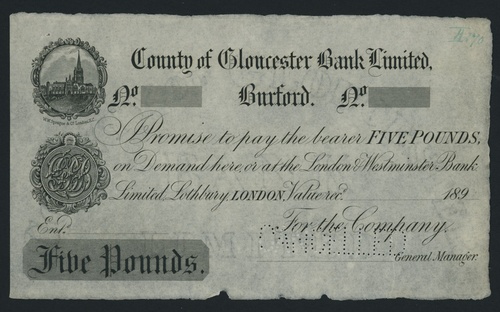 County of Gloucester Bank Limited,
No. Burford. No.
Promise to pay the bearer FIVE POUNDS,
on Demand here, or at the London & Westminster Bank
Limited Lothbury, LONDON, Value recd. 189
For the Company,
Entd.
CANCELLED
General Manager.
Five Pounds.